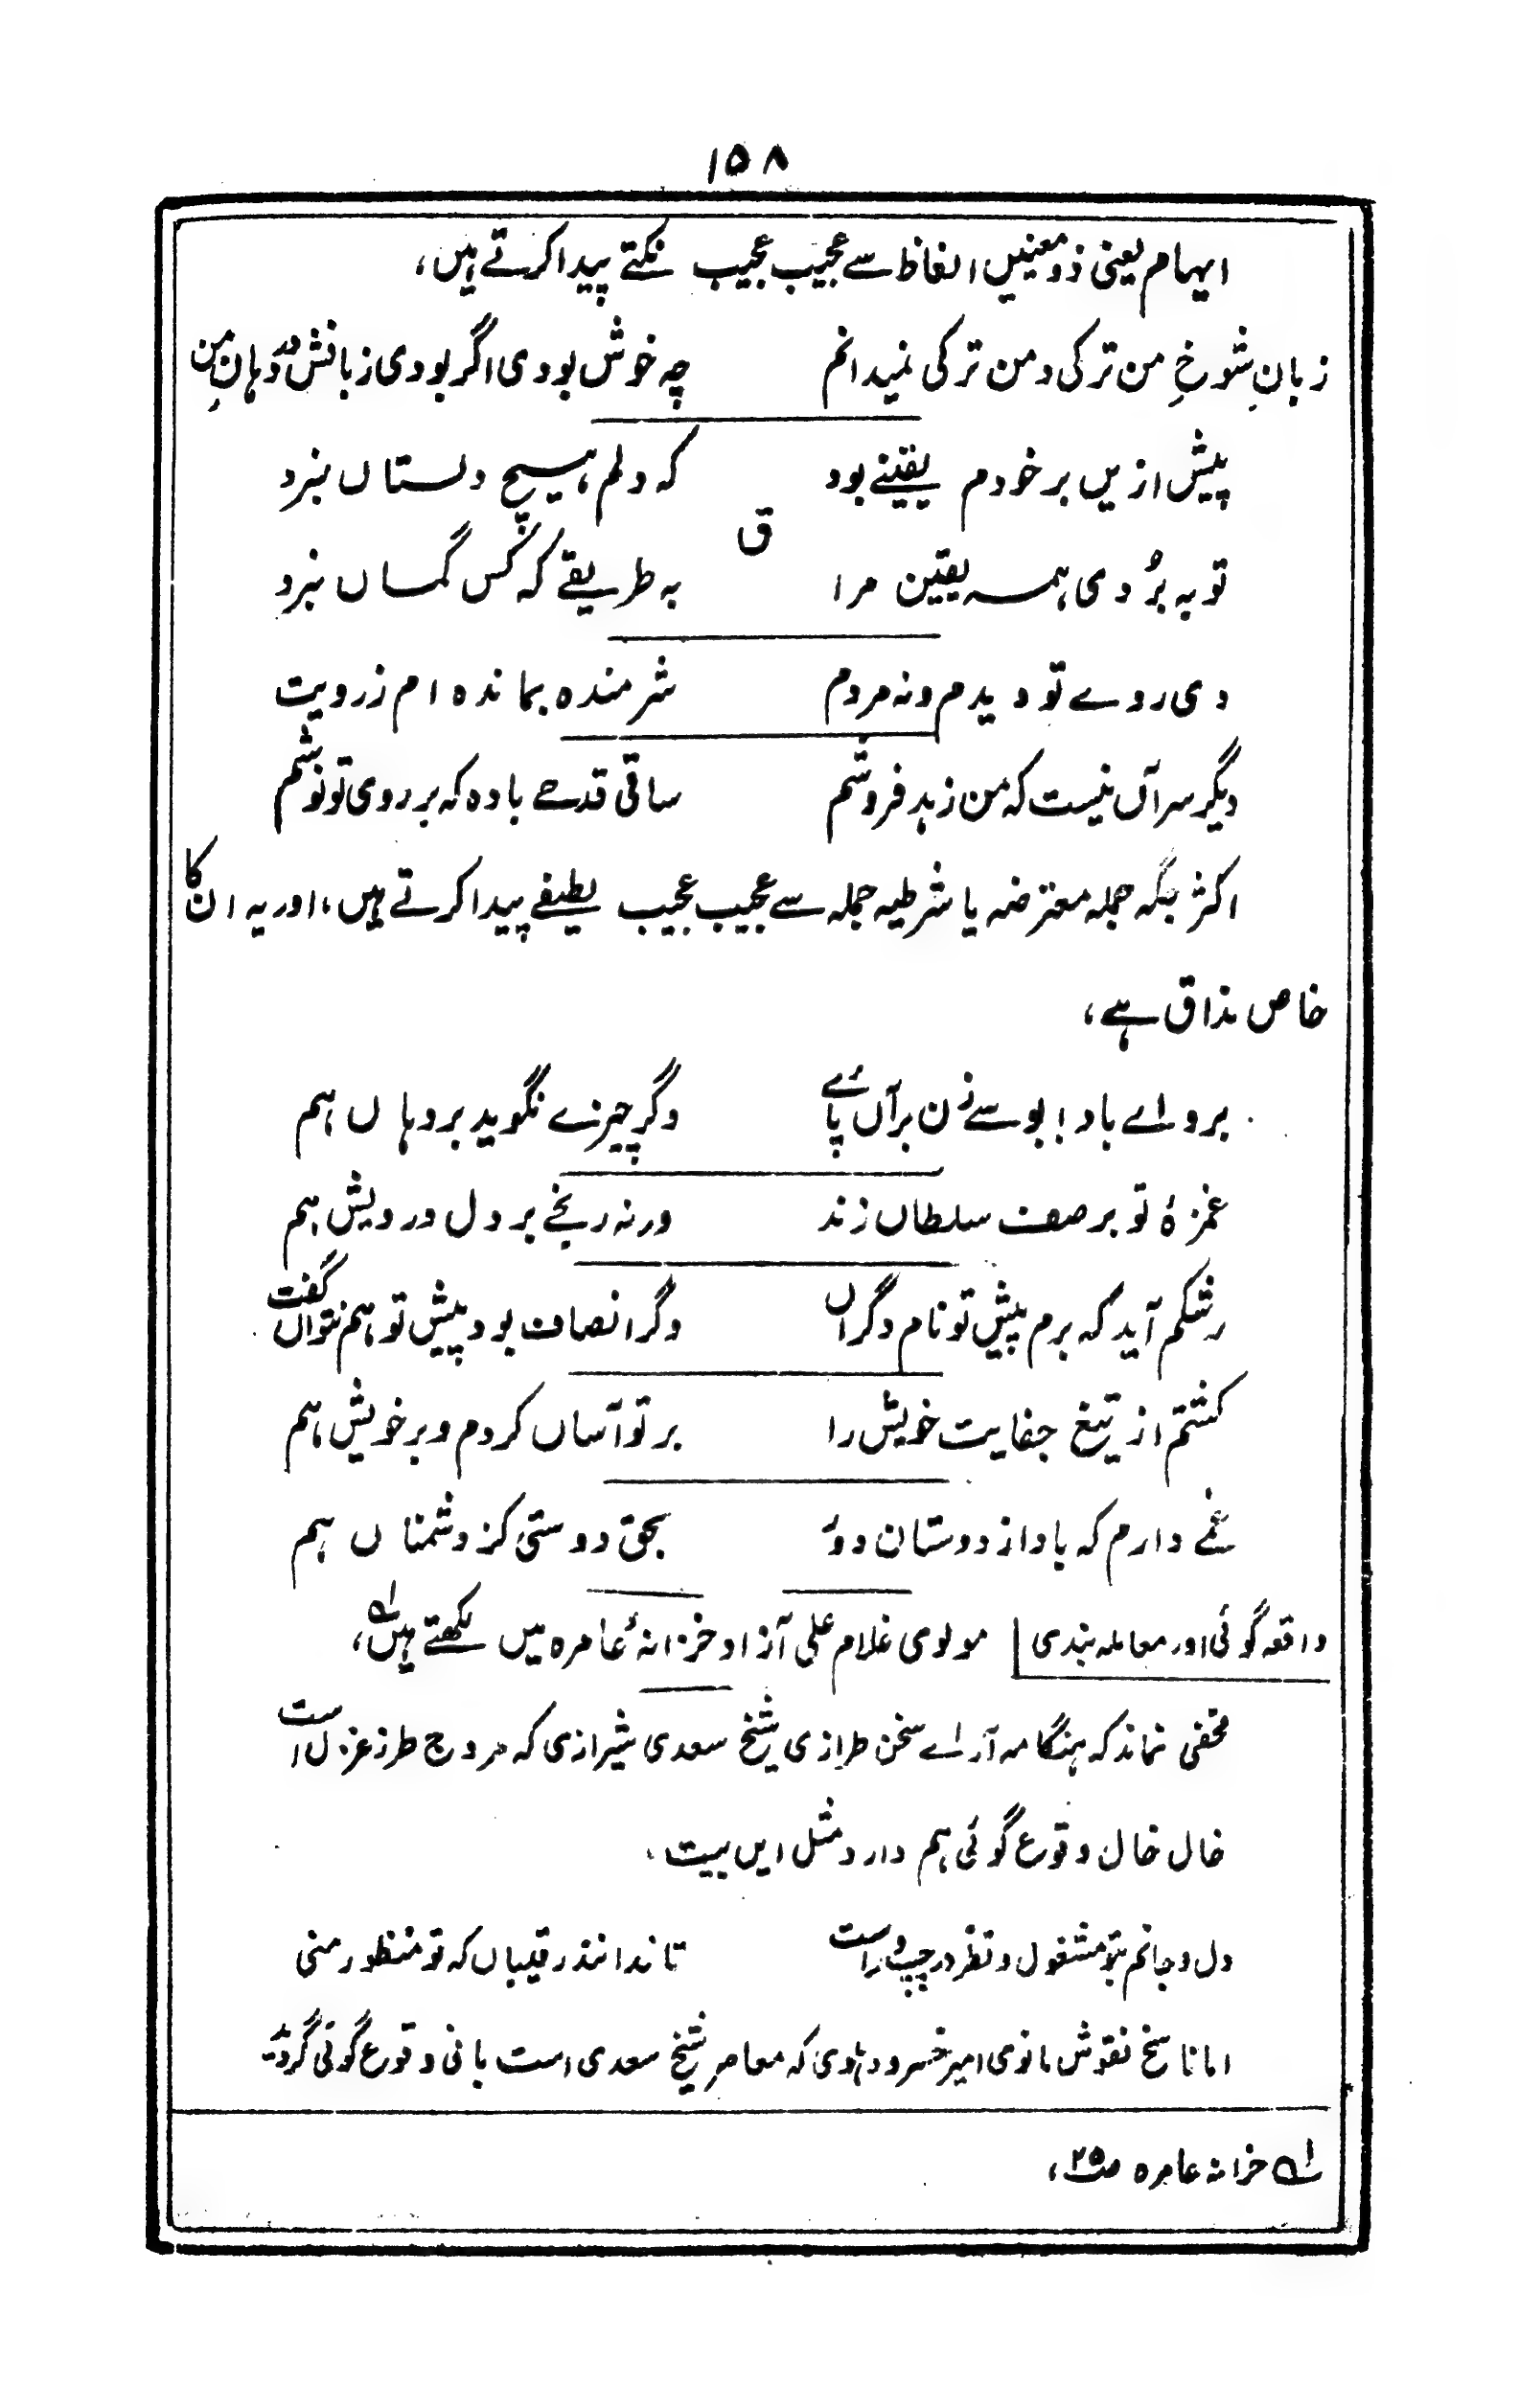 ۱۵۸
ایہام یعنی ذو معنیین الفاظ سے عجیب عجیب نکتے پیدا کرتے ہیں،
زبانِ شوخِ من ترکی و من ترکی نمیدانم چہ خوش بودی اگر بودی زبانش در دہانِ من
پیش ازیں بر خودم یقینے بود کہ دلم ہیچ دلستاں نبرد
ق
تو بہ بُردی ہمہ یقین مرا بہ طریقے کہ کس گماں نبرد
دی روے تو دیدم و نہ مردم شرمندہ بماندہ ام ز رویت
دیگر سر آں نیست کہ من زہد فروشم ساقی قدحے بادہ کہ بر روی تو نوشم
اکثر جگہ جملہ معترضہ یا شرطیہ جملہ سے عجیب عجیب لطیفے پیدا کرتے ہیں، اور یہ ان کا
خاص مذاق ہے،
برو اے باد! بوسے زن بر آں پاے وگر چیزے نگوید بر دہاں ہم
غمزۂ تو بر صف سلطاں زند ورنہ رنجے بر دل درویش ہم
رشکم آید کہ برم پیش تو نام دگراں وگر انصاف بود پیش تو ہم نتواں گفت
کشتم از تیغ جفایت خویش را بر تو آساں کردم و بر خویش ہم
غمے دارم کہ باد از دوستان دور بحق دوستی کز دشمناں ہم
واقعہ گوئی اور معاملہ بندی مولوی غلام علی آزاد خزانۂ عامرہ میں لکھتے ہیں لہ،
مخفی نماند کہ ہنگامہ آراے سخن طرازی شیخ سعدی شیرازی کہ مروج طرز غزل است
خال خال وقوع گوئی ہم دارد مثل ایں بیت،
دل و جانم بتو مشغول و نظر در چپ و راست تا ندانند رقیباں کہ تو منظور منی
اما ناسخ نقوش مانوی امیر خسرو دہلوی کہ معاصرِ شیخ سعدی است بانی وقوع گوئی گردید
لہ خزانہ عامرہ ص ۲۵،